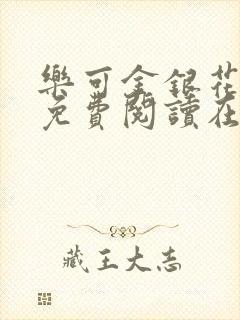 樂可金銀花
免費閱讀在
藏王大志